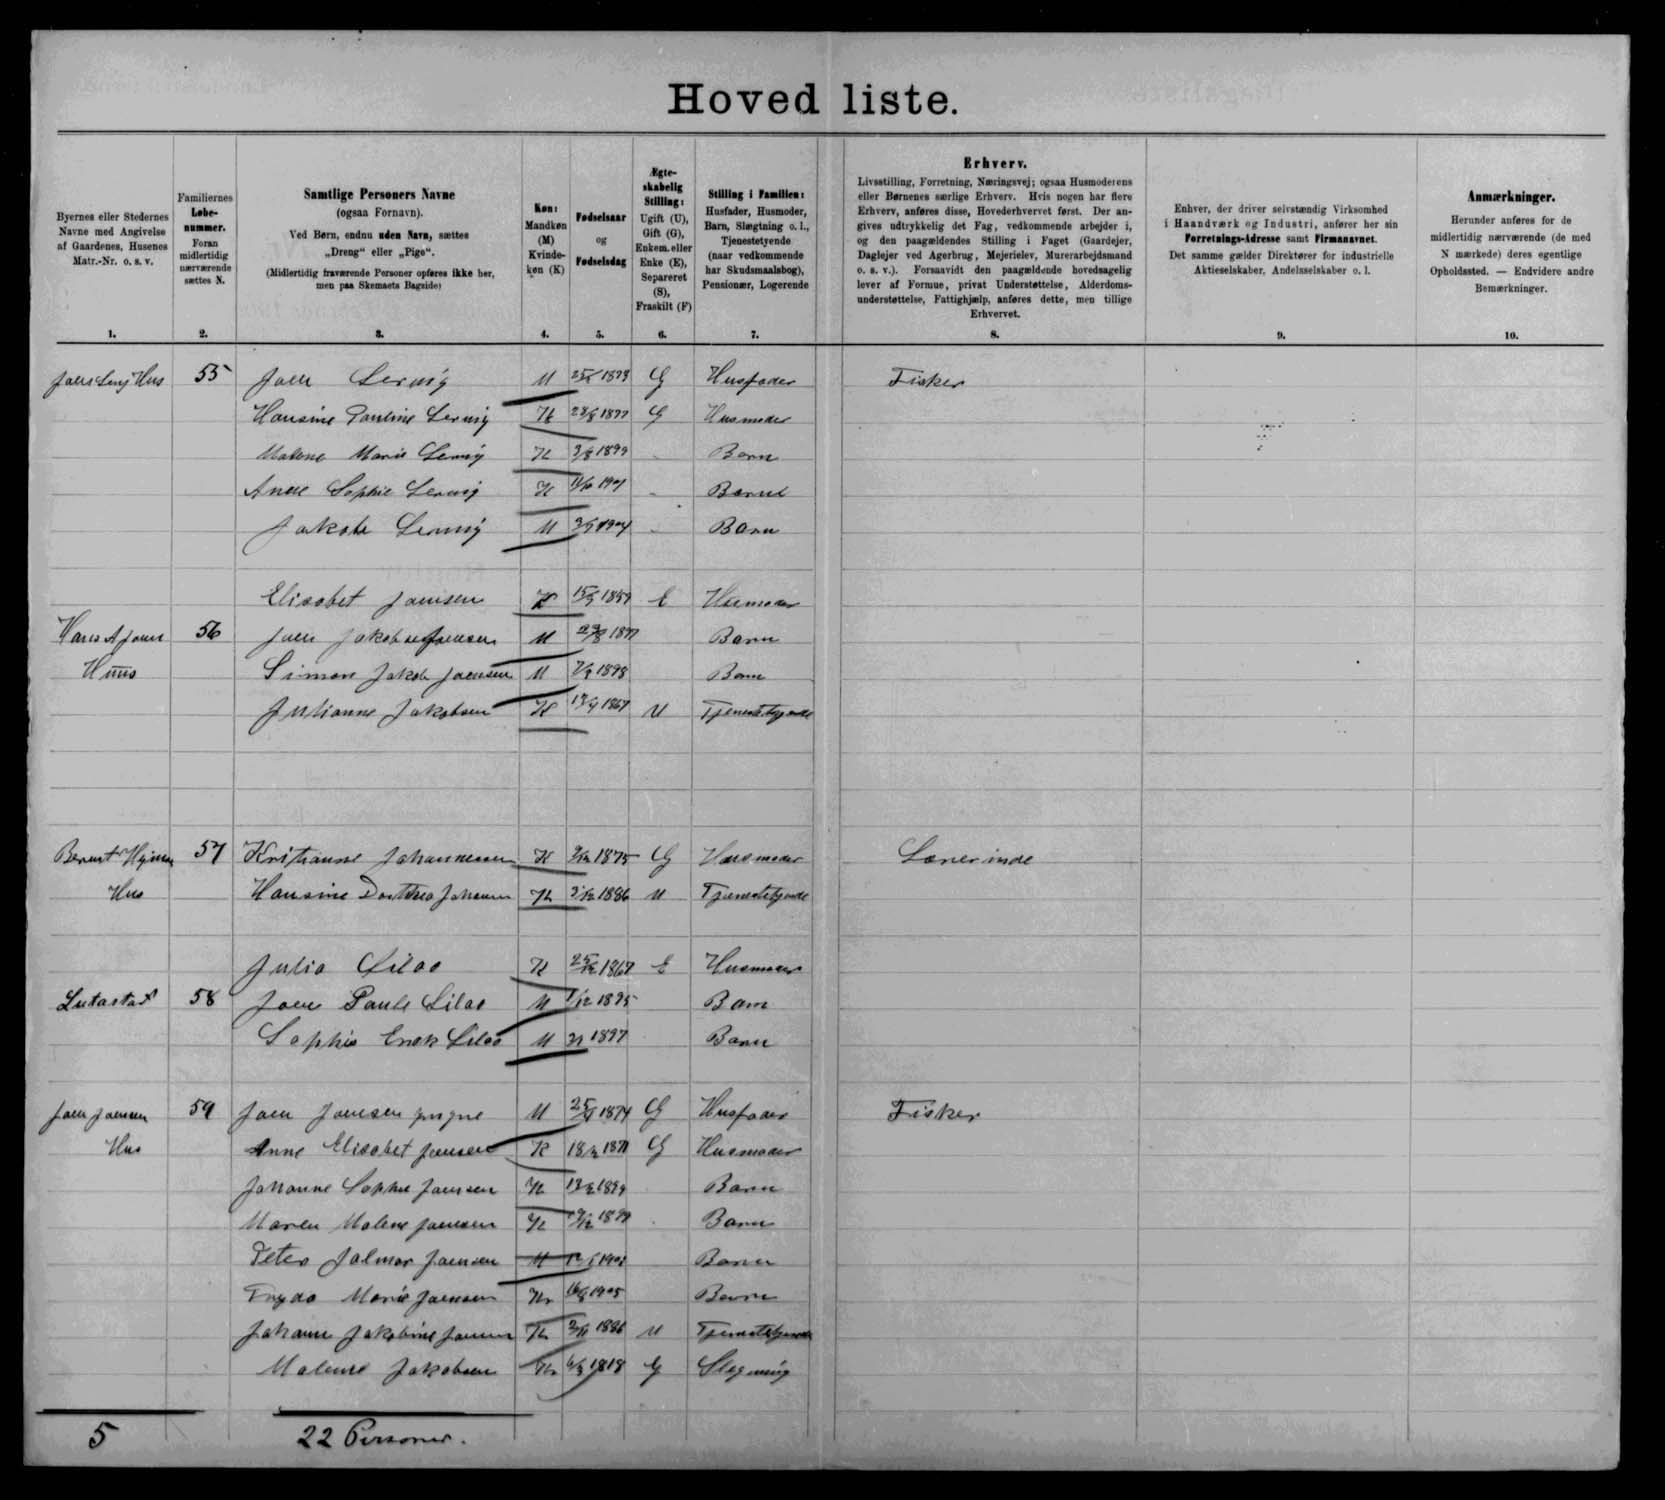 Hovedliste.
Byernes eller Stedernes Navne med Angivelse af Gaardenes, Husenes Matr.-Nr. o. s. v.
Familiernes Løbe-nummer. Foran midlertidig nærværende sættes N.
Samtlige Personers Navne
(ogsaa Fornavn).
Ved Børn, endnu uden Navn, sættes
„Dreng“ eller „Pige“.
(Midlertidig fraværende Personer opføres ikke her,
men paa Skemaets Bagside)
Køn: Mandkøn (M) Kvinde-køn (K)
Fødselsaar og Fødselsdag
Ægte-skabelig Stilling: Ugift (U), Gift (G), Enkem. eller Enke (E), Separeret (S), Fraskilt (F)
Stilling i Familien: Husfader, Husmoder, Barn, Slægtning o. l., Tjenestetyende (naar vedkommende har Skudsmaalsbog), Pensionær, Logerende
Erhverv.
Livsstilling, Forretning, Næringsvej; ogsaa Husmoderens
eller Børnenes særlige Erhverv. Hvis nogen har flere
Erhverv, anføres disse, Hovederhvervet først. Der an-
gives udtrykkelig det Fag, vedkommende arbejder i,
og den paagældendes Stilling i Faget (Gaardejer,
Daglejer ved Agerbrug, Mejerielev, Murerarbejdsmand
o. s. v.). Forsaavidt den paagældende hovedsagelig
lever af Formue, privat Understøttelse, Alderdoms-
understøttelse, Fattighjælp, anføres dette, men tillige
Erhvervet.
Enhver, der driver selvstændig Virksomhed
i Haandværk og Industri, anfører her sin
Forretnings-Adresse samt Firmanavnet.
Det samme gælder Direktører for industrielle
Aktieselskaber, Andelsselskaber o. l.
Anmærkninger.
Herunder anføres for de
midlertidig nærværende (de med
N mærkede) deres egentlige
Opholdssted. — Endvidere andre
Bemærkninger.
1. 2. 3. 4. 5. 6. 7. 8. 9. 10.
Hus 55 Joen Lervig M G Husfader Fisker
Hansine Pauline Lervig K 1877 G Husmoder
Malene Marie Lervig K 1899 Barn
Anne Sophie Lervig K Barn
Jakob Lervig M Barn
Elisabet Joensen K E Husmoder
Hans A Joen 56 Joen Jakob Joensen M Barn
Huus Simon Jakob Joensen M 1898 Barn
Julianne Jakobsen K 1867 U Tjenestetyende
57 Kristianne Johannesen K 1875 G Husmoder
Hus Hansine Dorthea K 1886 U Tjenestetyende
Julia Lilaa K 1867 E Husmoder
58 Joen Paule Lilaa M 1895 Barn
Enok Lilaa M 1897 Barn
Joen Joensen 59 Joen Joensen M 1874 G Husfader Fisker
Hus Anne Elisabet Joensen K G Husmoder
Johanne Sophie Joensen K Barn
Maren Malene Joensen K Barn
Peter Jalmar Joensen M Barn
Marie Joensen K 1905 Barn
Johanne Jakobine Joensen K 1886 U Tjenestetyende
Malene Jakobsen K 1818 G
5 22 Personer.